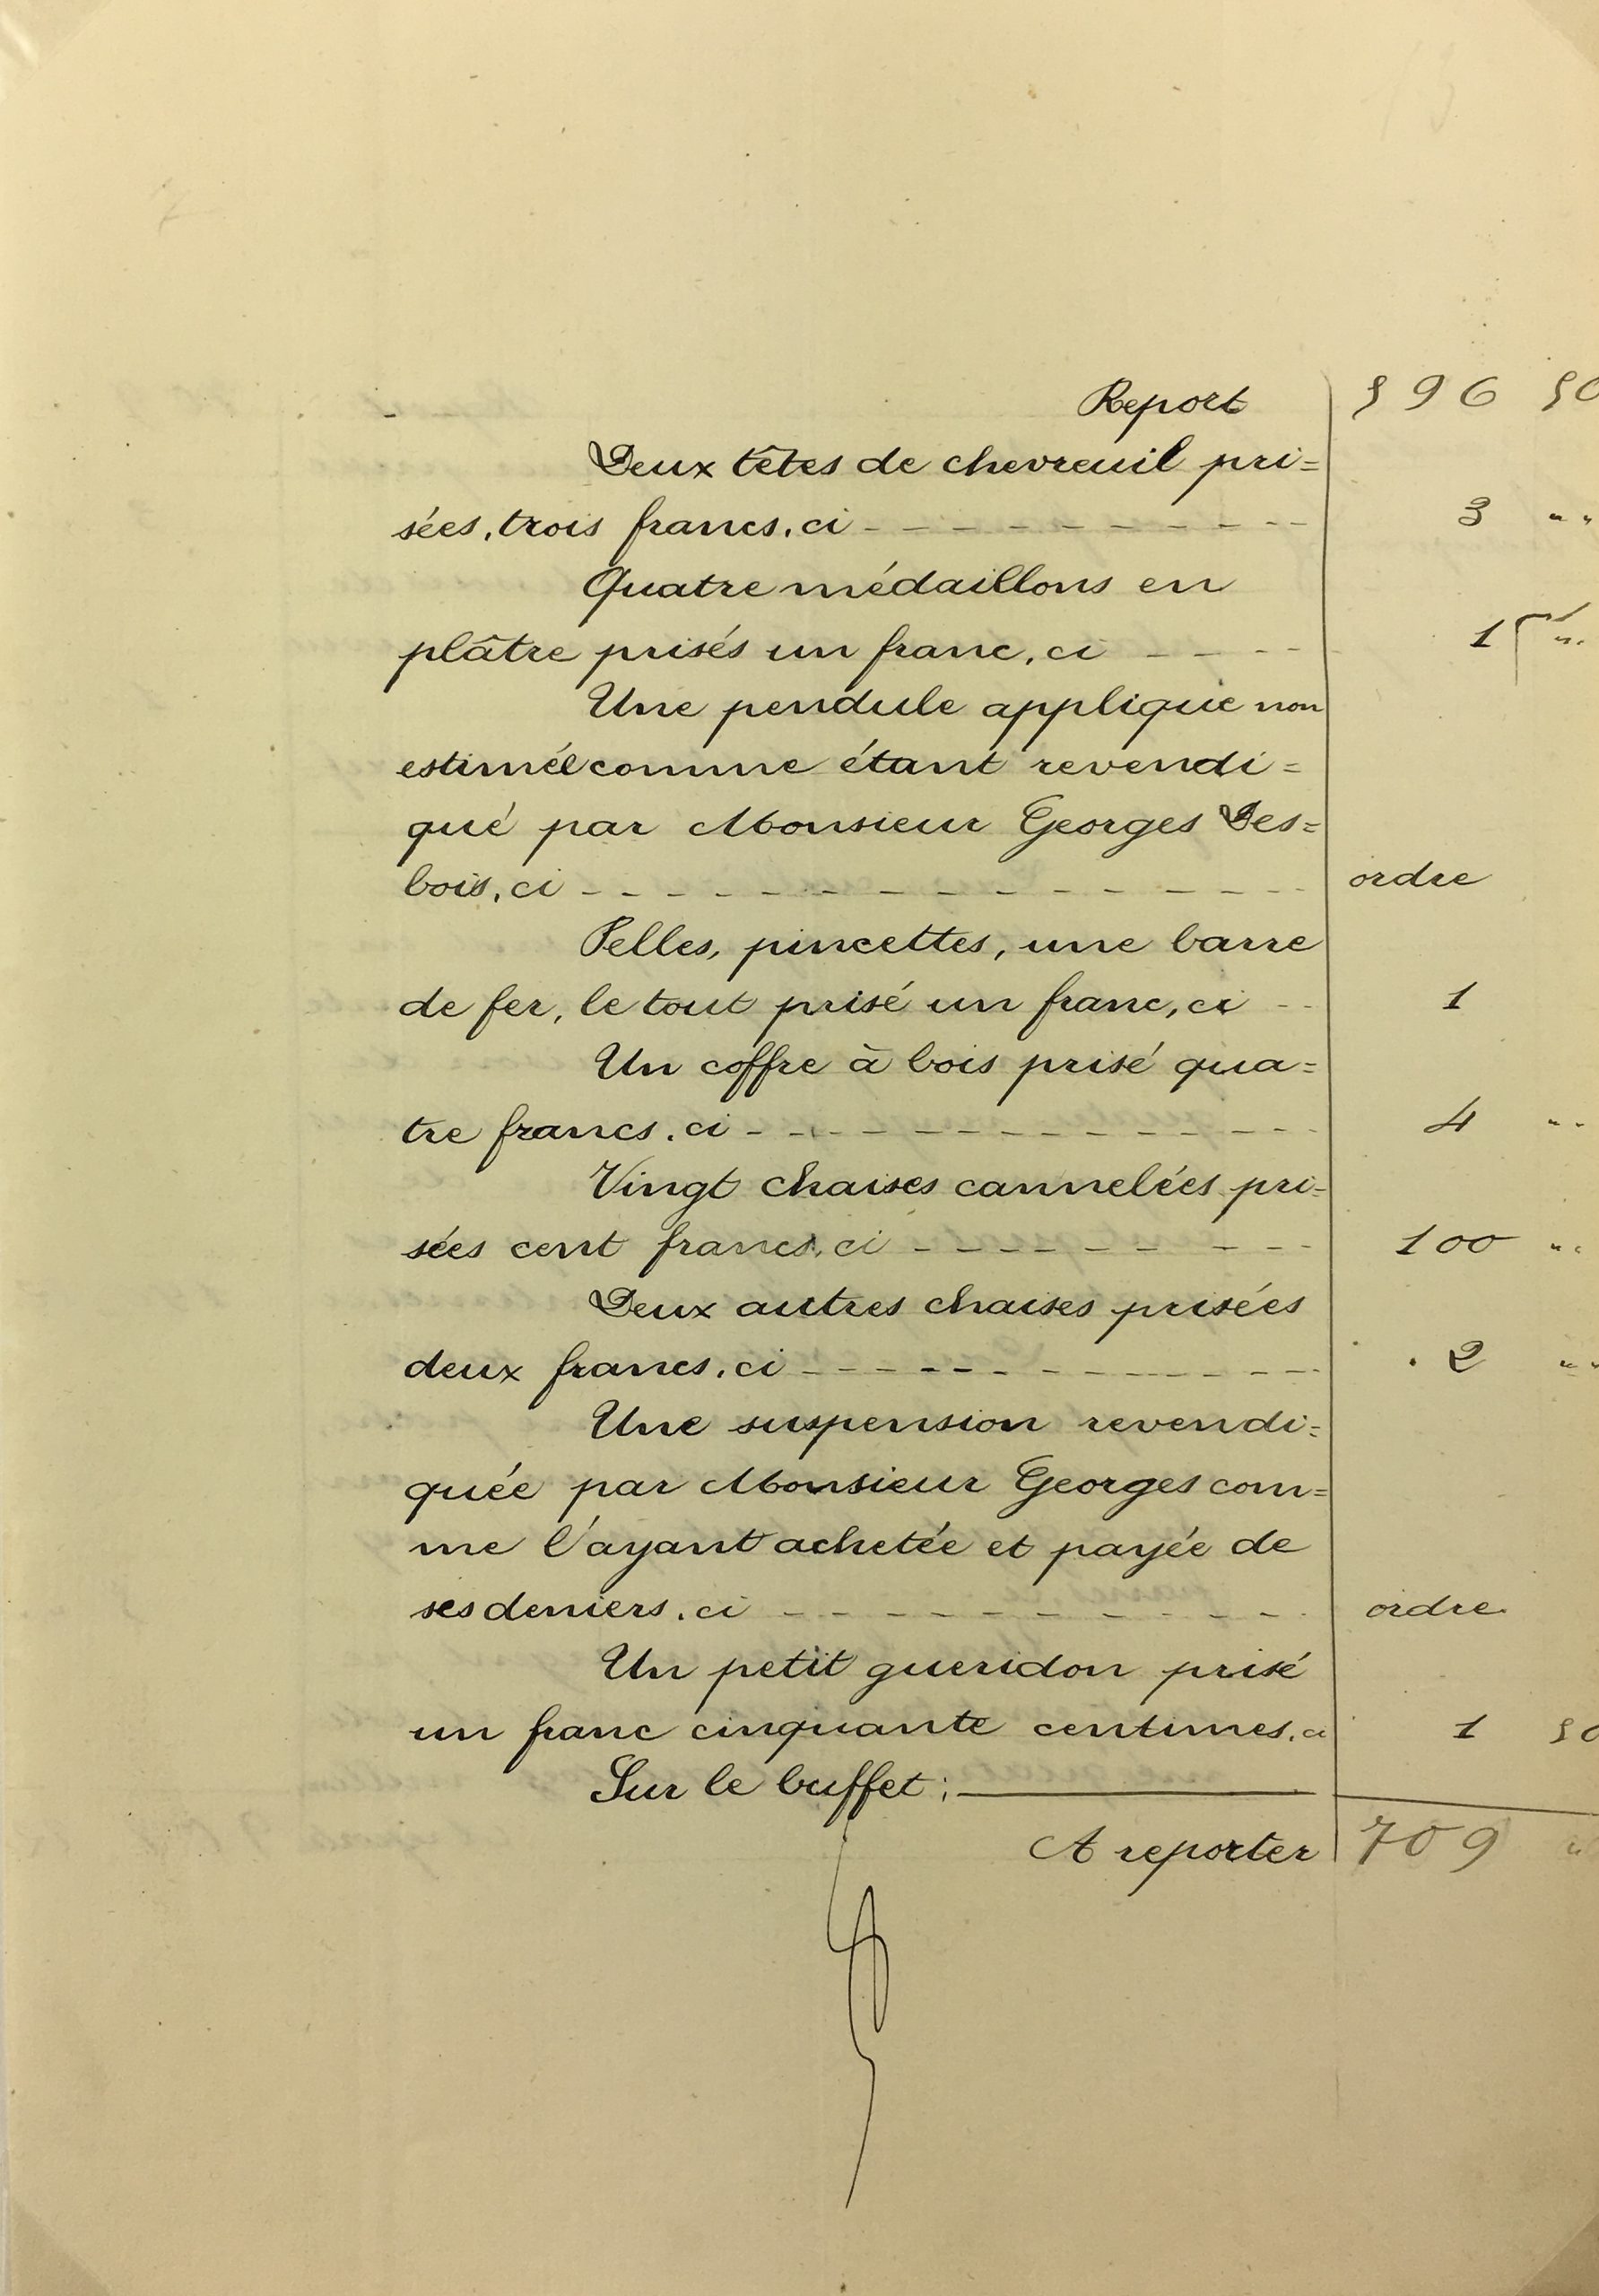 Report 596 50
Deux têtes de chevreuil pri=
sées, trois francs, ci - - - - - - - - - - 3 " "
Quatre médaillons en
plâtre prisés un franc, ci - - - - 1 "
Une pendule applique non
estimée comme étant revendi=
qué par Monsieur Georges Des=
bois, ci - - - - - - - - - - - - - ordre
Pelles, pincettes, une barre
de fer, le tout prisé un franc, ci - - 1
Un coffre à bois prisé qua=
tre francs, ci - - - - - - - - - - - - 4 " "
Vingt chaises cannelées pri=
sées cent francs, ci - - - - - - - - 100 " "
Deux autres chaises prisées
deux francs, ci - - - - - - - - - - - 2 " "
Une suspension revendi=
quée par Monsieur Georges com=
me l'ayant achetée et payée de
ses deniers, ci - - - - - - - - - - ordre
Un petit gueridon prisé
un franc cinquante centimes, ci 1 50
Sur le buffet :
A reporter 709 "